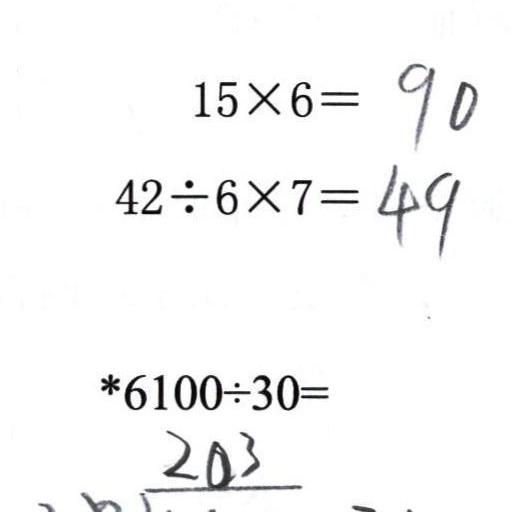 15×6= 90
42÷6×7= 49
*6100÷30=
203